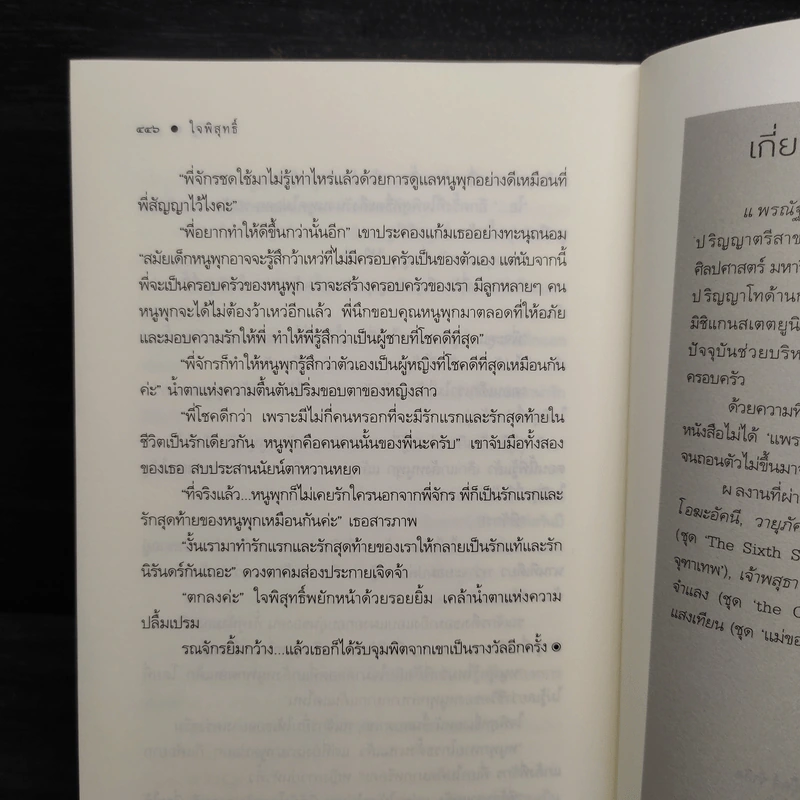 ๔๔๖ ● ใจพิสุทธิ์
“พี่จักรชดใช้มาไม่รู้เท่าไหร่แล้วด้วยการดูแลหนูพุกอย่างดีเหมือนที่
พี่สัญญาไว้ไงคะ”
“พี่อยากทำให้ดีขึ้นกว่านั้นอีก” เขาประคองแก้มเธออย่างทะนุถนอม
“สมัยเด็กหนูพุกอาจจะรู้สึกว้าเหว่ที่ไม่มีครอบครัวเป็นของตัวเอง แต่นับจากนี้
พี่จะเป็นครอบครัวของหนูพุก เราจะสร้างครอบครัวของเรา มีลูกหลายๆ คน
หนูพุกจะได้ไม่ต้องว้าเหว่อีกแล้ว พี่นึกขอบคุณหนูพุกมาตลอดที่ให้อภัย
และมอบความรักให้พี่ ทำให้พี่รู้สึกว่าเป็นผู้ชายที่โชคดีที่สุด”
“พี่จักรก็ทำให้หนูพุกรู้สึกว่าตัวเองเป็นผู้หญิงที่โชคดีที่สุดเหมือนกัน
ค่ะ” น้ำตาแห่งความตื้นตันปริ่มขอบตาของหญิงสาว
“พี่โชคดีกว่า เพราะมีไม่กี่คนหรอกที่จะมีรักแรกและรักสุดท้ายใน
ชีวิตเป็นรักเดียวกัน หนูพุกคือคนคนนั้นของพี่นะครับ” เขาจับมือทั้งสอง
ของเธอ สบประสานนัยน์ตาหวานหยด
“ที่จริงแล้ว...หนูพุกก็ไม่เคยรักใครนอกจากพี่จักร พี่ก็เป็นรักแรกและ
รักสุดท้ายของหนูพุกเหมือนกันค่ะ” เธอสารภาพ
“งั้นเรามาทำรักแรกและรักสุดท้ายของเราให้กลายเป็นรักแท้และรัก
นิรันดร์กันเถอะ” ดวงตาคมส่องประกายเจิดจ้า
“ตกลงค่ะ” ใจพิสุทธิ์พยักหน้าด้วยรอยยิ้ม เคล้าน้ำตาแห่งความ
ปลื้มเปรม
รณจักรยิ้มกว้าง...แล้วเธอก็ได้รับจุมพิตจากเขาเป็นรางวัลอีกครั้ง ◉
เกี่ย
แพรณัฐ
ปริญญาตรีสาข
ศิลปศาสตร์ มหาวิ
ปริญญาโทด้านก
มิชิแกนสเตตยูนิ
ปัจจุบันช่วยบริห
ครอบครัว
ด้วยความที่
หนังสือไม่ได้ ‘แพร
จนถอนตัวไม่ขึ้นมาจ
ผลงานที่ผ่า
โอฆะอัคนี, วายุภัค
(ชุด ‘The Sixth S
จุฑาเทพ’), เจ้าพสุธา
จำแลง (ชุด ‘the C
แสงเทียน (ชุด ‘แม่ขอ